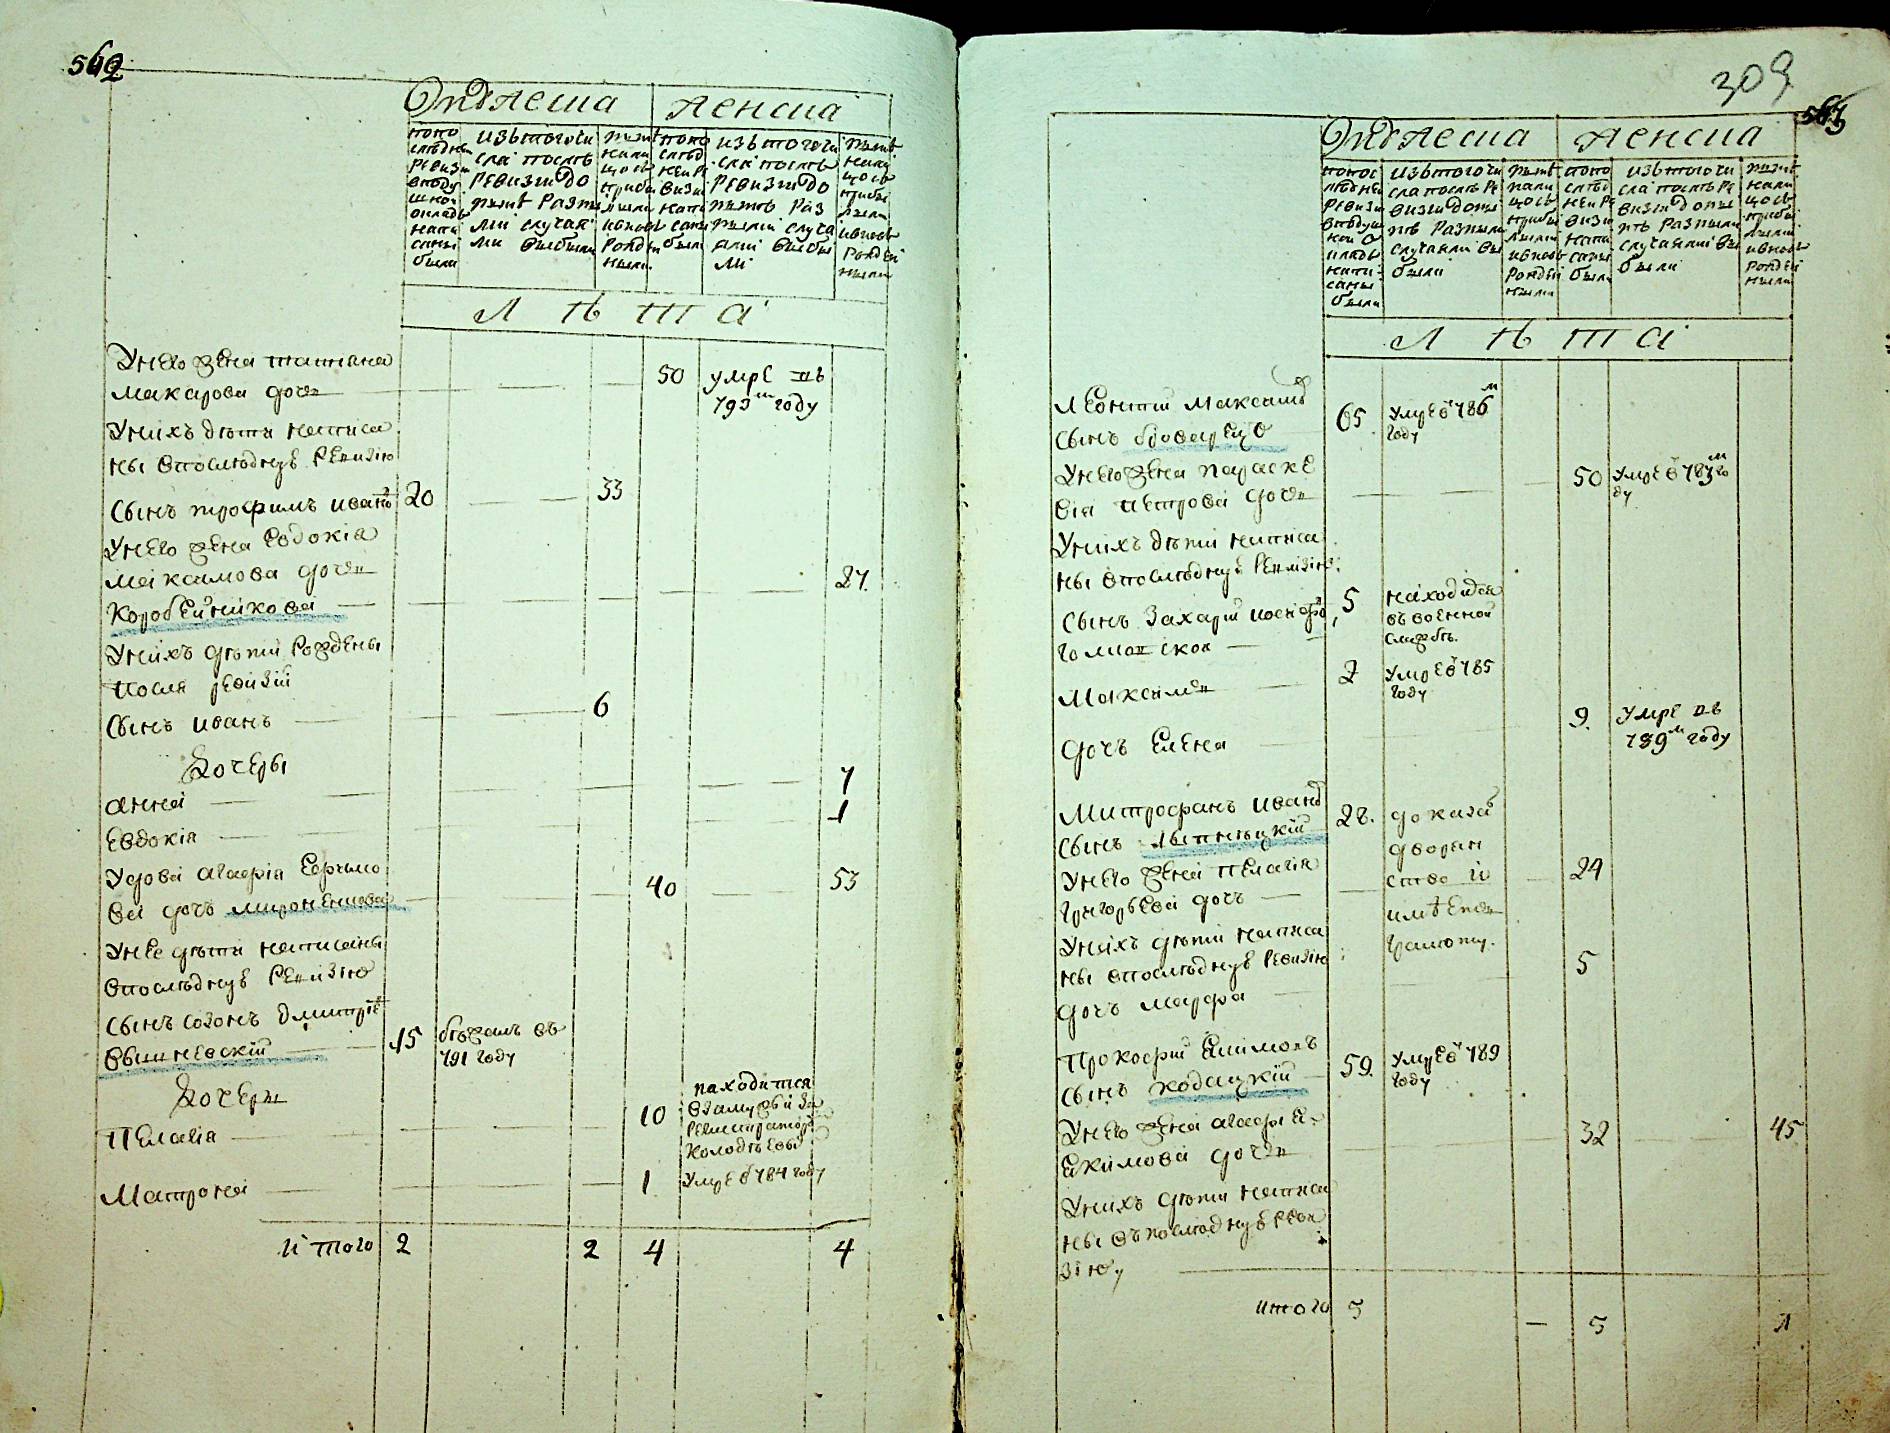 562
Отдѣлеша
ленсиа
попо
слѣдней
ревизи
вподу
шной
окладъ
напи
саны
были
изътогочи
сла послѣ
ревизіи до
нынѣ разны
ми случая
ми выбыли
нынѣ
нали
цо съ
прибы
лыми
ивновь
рожде
ными
попо
слѣд
ней ре
визи
напи
саны
были
изътогочи
сла послѣ
ревизіи до
нынѣ раз
ными случа
ями выбы
ли
нынѣ
нали
цо съ
прибы
лыми
ивновь
рожде
ными
Л Ѣ Т А
Унего жена татияна
макарова дочь 50 умре въ
793м году
Унихъ дѣти написа
ны впослѣднуѣ Ревизію
Сынъ трофимъ ивановъ 20 33
Унего жена Евдокія
максимова дочь 27.
Коробейникова
Унихъ дѣти Рождены
послѣ ревизіи
Сынъ иванъ 6
Дочеры
анна 7
Евдокія 1
Удова агафія Ефремо
ва дочь мироненкова 40 53
Унее дѣти написаны
впослѣднуѣ Ревизію
Сынъ созонъ дмитріевъ
Вышневскій 15 бѣжалъ въ
791 году
Дочеры
Пелагія 10 находится
взамужъи за
Регистраторомъ
Колодѣевы
Матрона 1 Умре в 784 году
Итого 2 2 4 4
309
563
Отдѣлеша
ленсиа
попос
лѣдней
ревизи
вподуш
ной о
кладъ
напи
саны
были
изътогочи
сла послѣ Ре
визіи доны
нѣ Разными
случаями вы
были
нынѣ
нали
цо съ
прибы
лыми
ивновь
рождей
ными
попо
слѣд
ней ре
визи
напи
саны
были
изътогочи
сла послѣ Ре
визіи доны
нѣ Разными
случаями вы
были
нынѣ
нали
цо съ
прибы
лыми
ивновь
рождей
ными
Л Ѣ Т А
Леонтій Максимовъ
сынъ броварецъ 65 Умре в 786м
году
Унего жена параске
вія петрова дочь 50 Умре в 783м го
ду
Унихъ дѣти написа
ны впослѣднуѣ Ревизію:
Сынъ Захарій 5 находится
въ военной
службѣ.
Максимъ 2 Умре в 785
году
дочъ Елена 9. Умре въ
789м году
Митрофанъ ивановъ
сынъ 28. доказалъ
дворян
ство и
имѣетъ
грамоту.
Унего жена Пелагія
григорьева дочъ 24
Унихъ дѣти написа
ны впослѣднуѣ Ревизію
дочъ марфа 5
Прокофій Екимовъ
сынъ кодацкій 59. Умре в 789
году
Унего жена агафія
Екимова дочь 32 45
Унихъ дѣти написа
ны въпослѣднуѣ Реви
зію,
итого 5 — 5 1